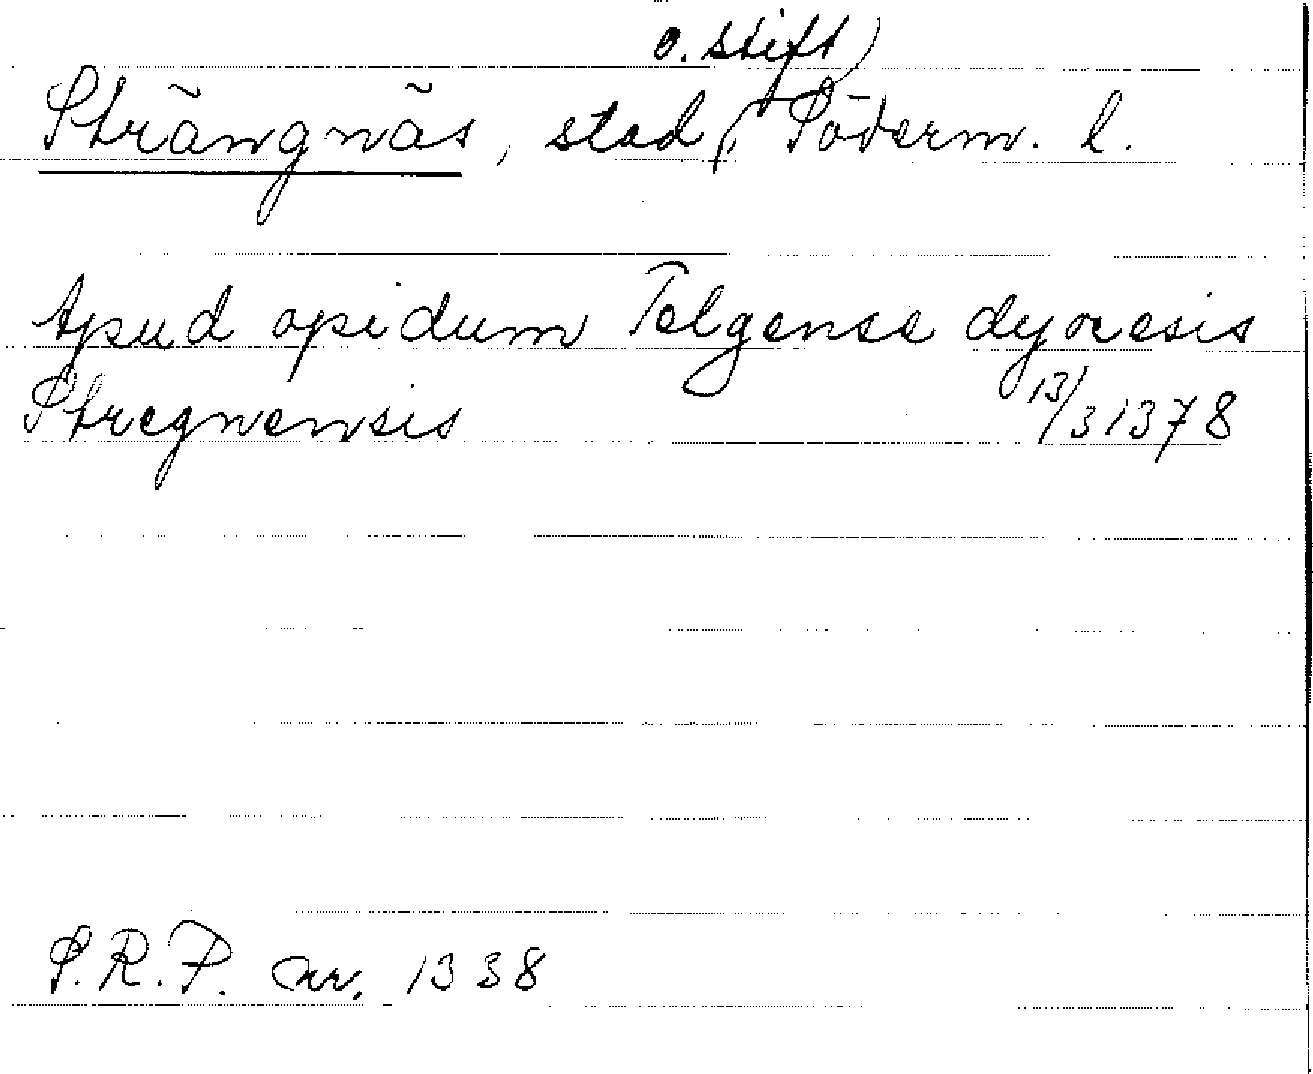 o. stift)
Strängnäs, stad (, Söderm. l.
Apud opidum Telgense dyocesis
Stregnensis 13/3 1378
S.R.P. nr. 1338